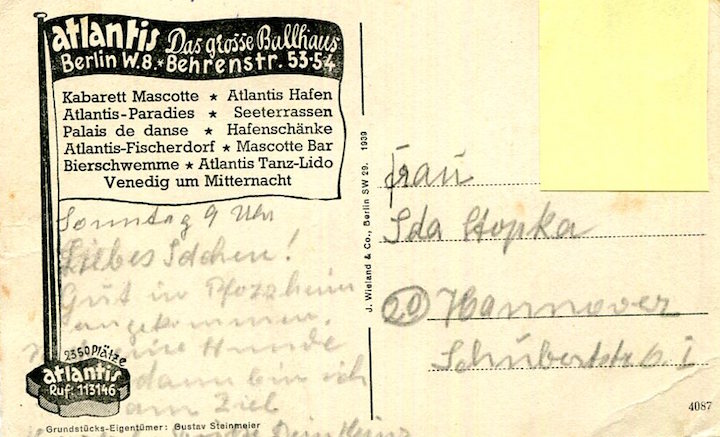 atlantis Das grosse Ballhaus
Berlin W.8. ★ Behrenstr. 53-54
Kabarett Mascotte ★ Atlantis Hafen
Atlantis-Paradies ★ Seeterrassen
Palais de danse ★ Hafenschänke
Atlantis-Fischerdorf ★ Mascotte Bar
Bierschwemme ★ Atlantis Tanz-Lido
Venedig um Mitternacht
Sonntag 9 Uhr
Liebes Idchen!
Gut in Pforzheim
angekommen.
eine Stunde
dann bin ich
am Ziel
Dein Heinz
2350 Plätze
atlantis
Ruf: 113146
Grundstücks-Eigentümer: Gustav Steinmeier
J. Wieland & Co., Berlin SW 29. 1939
Frau
Ida Stopka
20 Hannover
Schubertstr. 6 I
4087